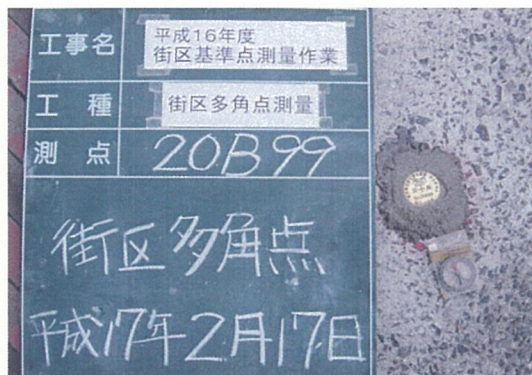 工事名
平成16年度
街区基準点測量作業
工種
街区多角点測量
測点
20B99
街区多角点
平成17年2月17日